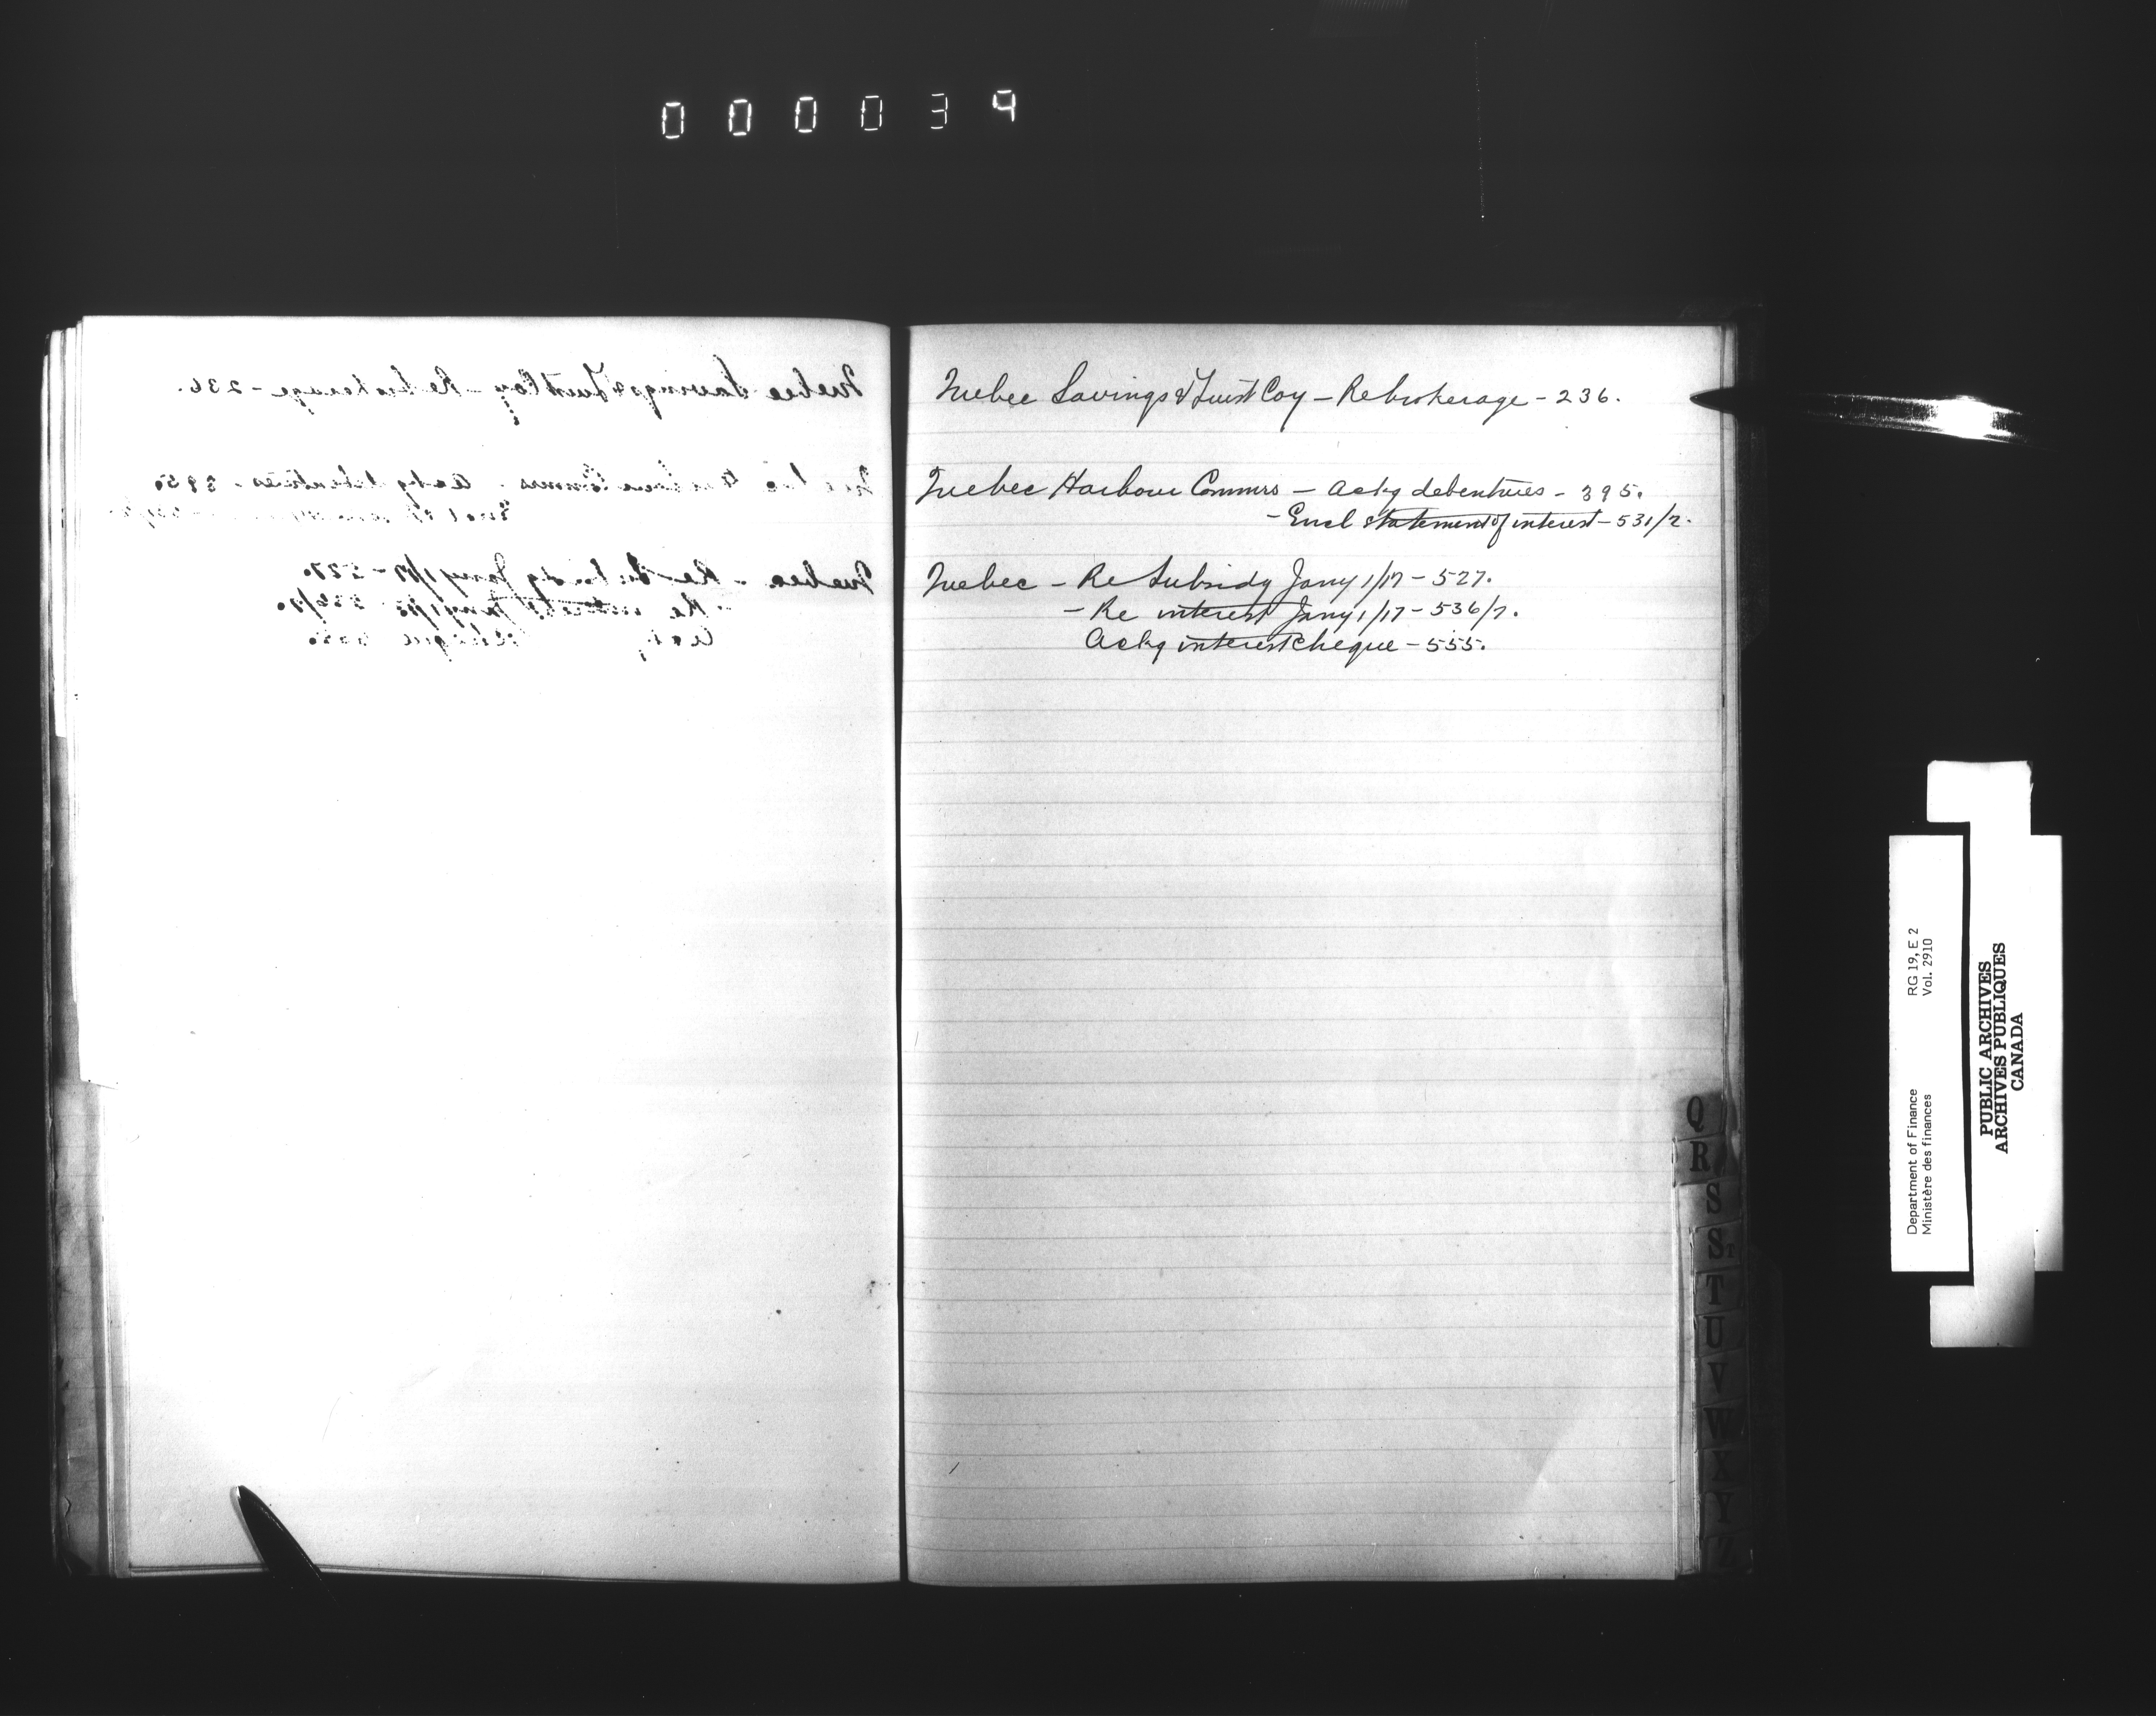 000039
Quebec Savings & Trust Coy - Re brokerage - 236.
Quebec Harbour Commrs - Ackg debentures - 395.
- Encl statement of interest - 531/2.
Quebec - Re Subsidy Jany 1/17 - 527.
- Re interest Jany 1/17 - 536/7.
Ackg interest cheque - 555.
Q
R
S
St
T
U
V
W
X
Y
Z
Department of Finance RG 19, E 2
Ministère des finances Vol. 2910
PUBLIC ARCHIVES
ARCHIVES PUBLIQUES
CANADA